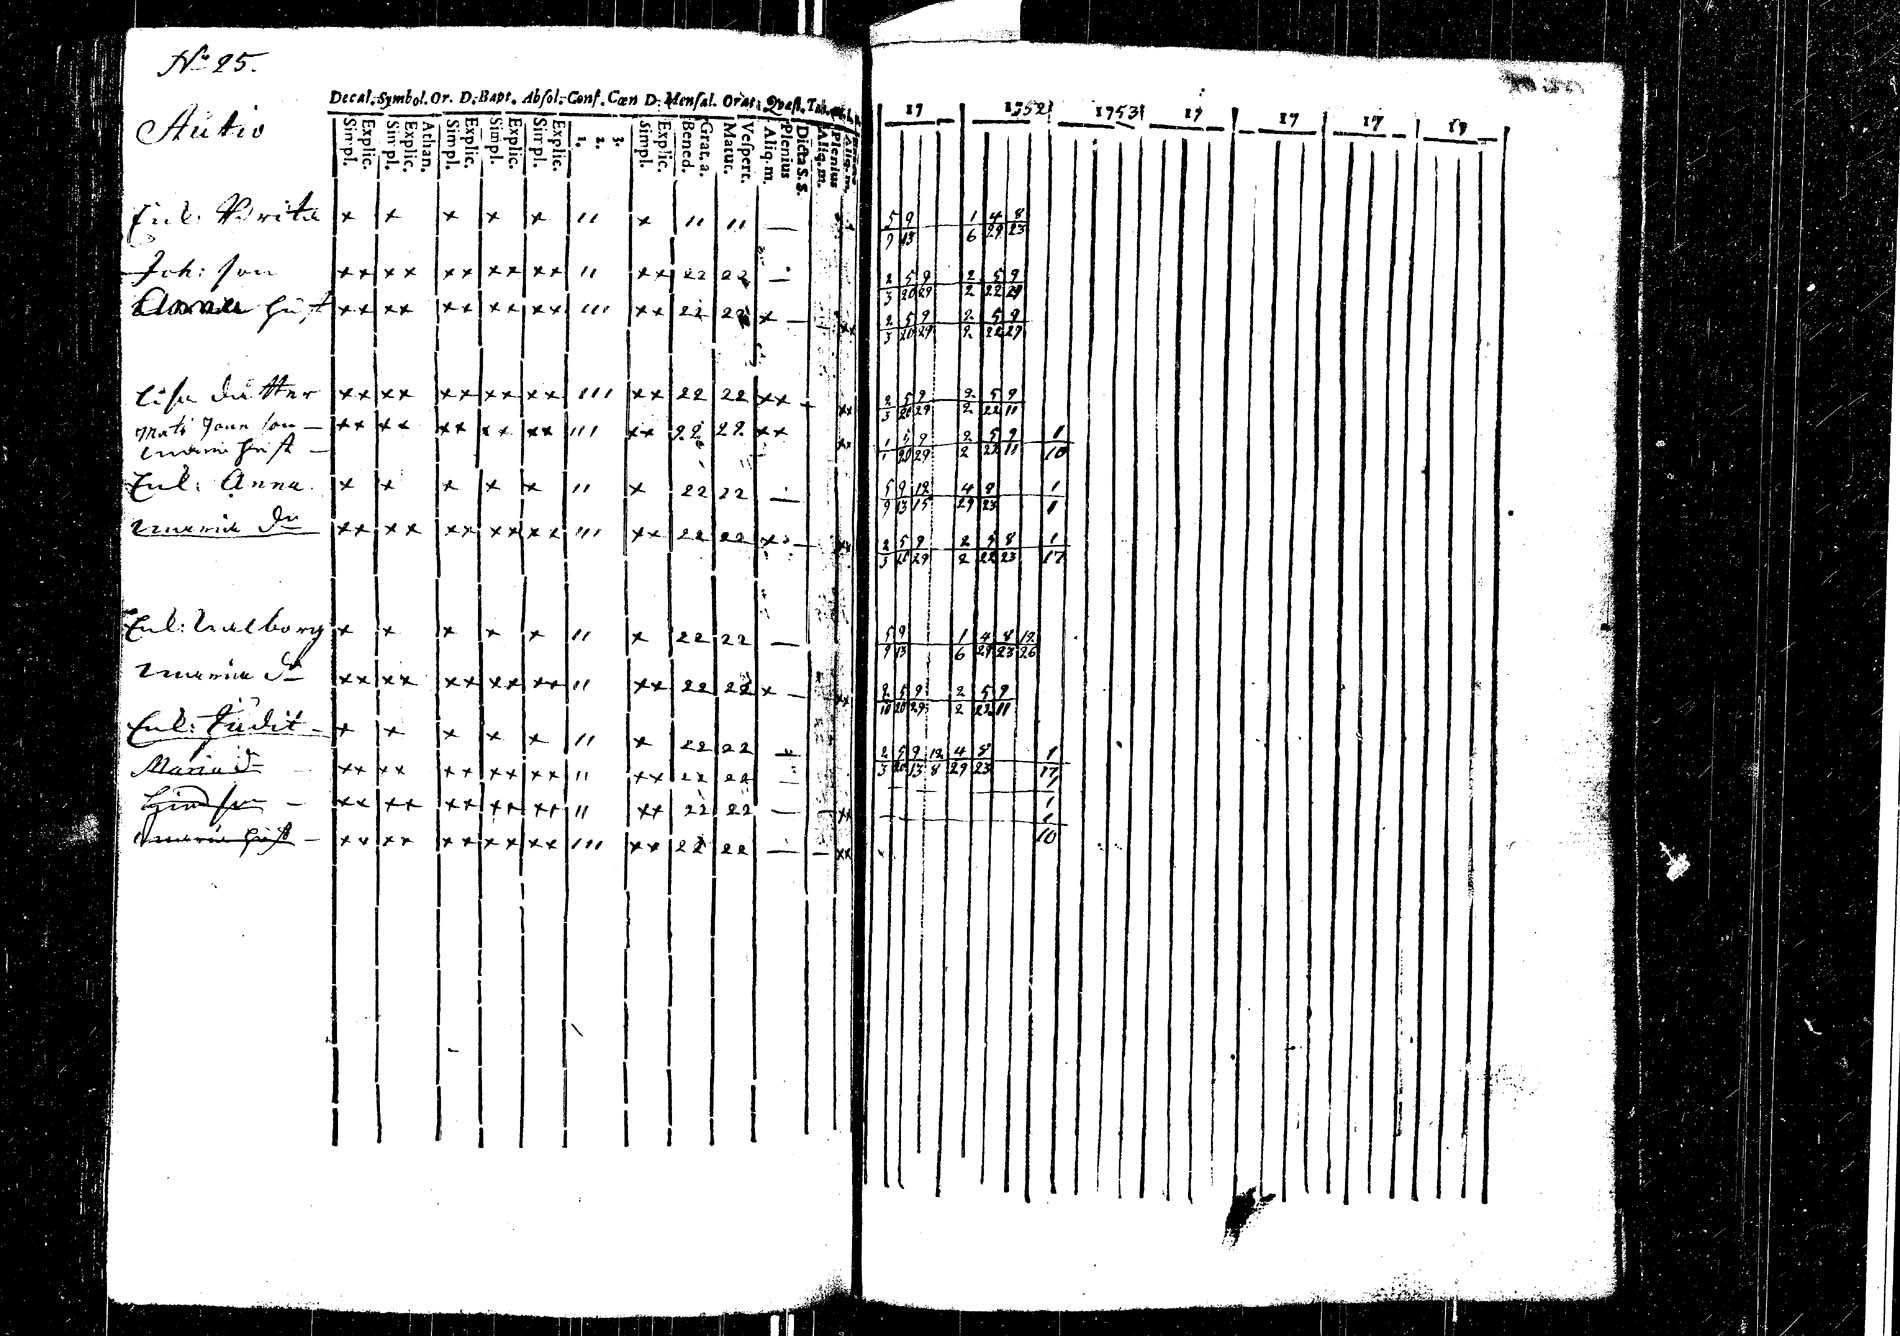 No 25.
Decal. Symbol. Or. D. Bapt. Absol. Conf. Cœn D. Mensal. Orat. Qvæst.
Simpl. Explic. Simpl. Explic. Athan. Simpl. Explic. Simpl. Explic. Simpl. Explic. 1. 2. 3. Simpl. Explic. Bened. Grat. a. Matut. Vespert. Aliq. m. Plenius Dicta S. S. Aliq. m. Plenius Aliq. m.
17 1752 1753 17 17 17 17
Autio
Enk: Brita x x x x x ıı x ıı ıı — 5/9 9/13 1/6 4/29 8/23
Joh: son xx xx xx xx xx ıı xx 22 22 — 2/3 5/20 9/29 2/2 5/22 9/29
Anna hust xx xx xx xx xx ııı xx 22 22 x — xx 2/3 5/20 9/29 2/2 5/22 9/29
Lisa dutter xx xx xx xx xx ııı xx 22 22 xx — xx 2/3 5/20 9/29 2/2 5/22 9/11
Matts Joan son — xx xx xx xx xx ııı xx 22 22 xx xx 1/1 5/20 9/29 2/2 5/22 9/11 1/10
Maria hust —
Enk: Anna x x x x x ıı x 22 22 — 5/9 9/13 12/15 4/29 8/23 1/1
Maria dr xx xx xx xx xx ııı xx 22 22 x — xx 2/3 5/20 9/29 2/2 5/22 8/23 1/17
Enk: Walborg x x x x x ıı x 22 22 — 5/9 9/13 1/6 4/29 8/23 12/26
Maria dr xx xx xx xx xx ıı xx 22 22 x — xx 2/10 5/20 9/29 2/2 5/22 9/11
Enk: Judit — x x x x x ıı x 22 22 2/3 5/20 9/13 12/8 4/29 8/23 1/17
Maria dr — xx xx xx xx xx ıı xx 22 22 — 1/1
Hind son — xx xx xx xx xx ıı xx 22 22 — — xx 1
Maria hust — xx xx xx xx xx ııı xx 22 22 — — xx 1/10